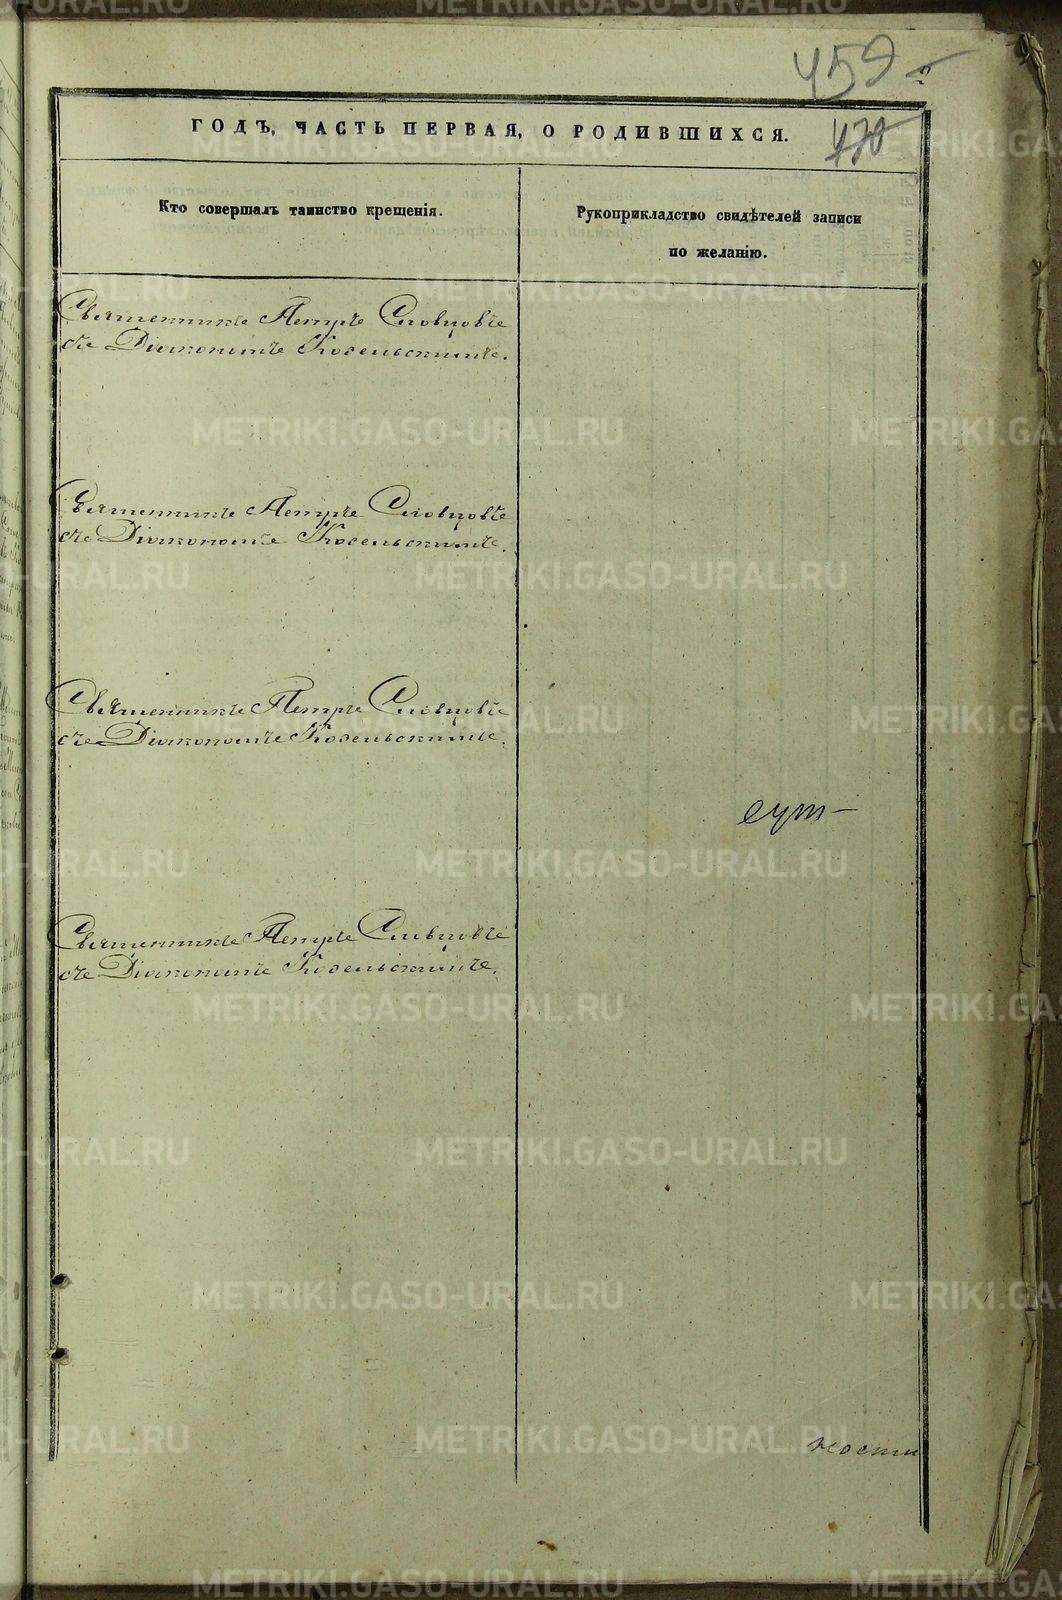 459
2
470
ГОДЪ, ЧАСТЬ ПЕРВАЯ, О РОДИВШИХСЯ.
Кто совершалъ таинство крещенія.
Рукоприкладство свидѣтелей записи
по желанію.
Священникъ Петръ Словцовъ
съ Діакономъ Косельскимъ.
Священникъ Петръ Словцовъ
съ Діакономъ Косельскимъ.
Священникъ Петръ Словцовъ
съ Діакономъ Косельскимъ.
Священникъ Петръ Словцовъ
съ Діакономъ Косельскимъ.
METRIKI.GASO-URAL.RU